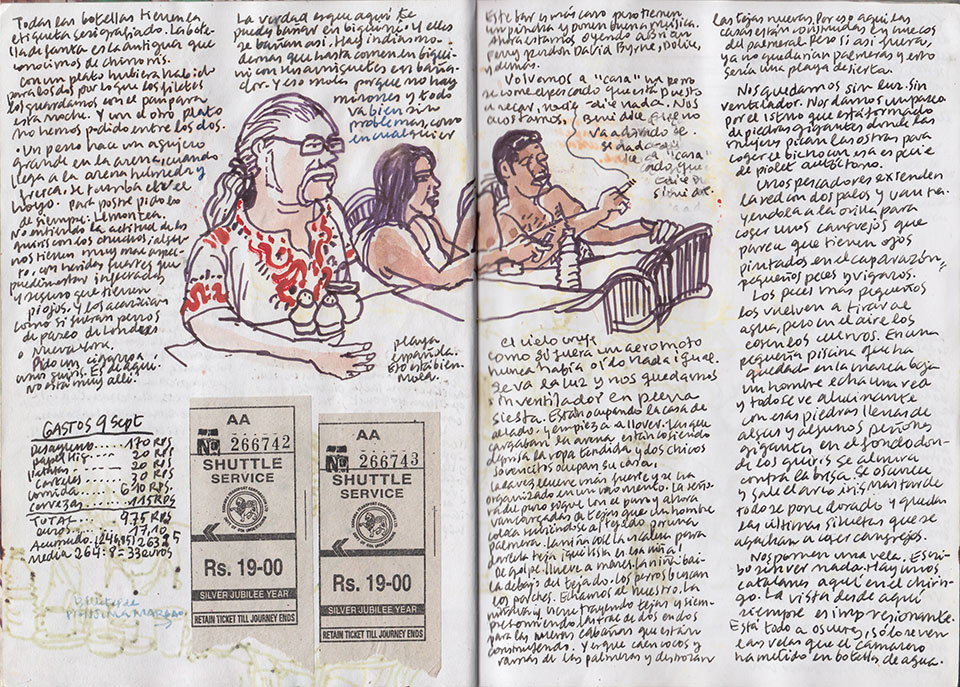 Todas las botellas tienen la
etiqueta serigrafiada. La bote-
lla de fanta es la antigua que
conocimos de chinorris.
Con un plato hubiera habido
para los dos por lo que los filetes
los guardamos con el pan para
esta noche. Y con el otro plato
no hemos podido entre los dos.
Un perro hace un agujero
grande en la arena, cuando
llega a la arena húmeda y
fresca, se tumba en el
hoyo. Para postre pido lo
de siempre: Lemontea.
No entiendo la actitud de los
guiris con los chuchos, algu-
nos tienen muy mal aspec-
to, con heridas fuertes que
pueden estar infectadas
y seguro que tienen
piojos, y los acarician
como si fueran perros
de paseo de Londres
o Nueva York.
Pido un cigarro a
unos guiris. El de aquí
no está muy allí.
La verdad es que aquí te
puedes bañar en biquini. Y ellos
se bañan así. Hay indias mo-
dernas que hasta comen en biqui-
ni con sus noviuetes en baña-
dor. Y eso mola porque no hay
mirones y todo
va bien sin
problemas, como
en cualquier
playa
española.
Eso está bien.
Mola.
GASTOS 9 Sept
Desayuno ..... 170 RPS
papel hig ..... 20 RPS
..... 20 RPS
..... 30 RPS
comida ..... 610 RPS
cervezas ..... 115 RPS
TOTAL ..... 975 RPS
euros ..... 17,10
Acumulado
media 264:8 = 33 euros
AA
No 266742
SHUTTLE
SERVICE
Rs. 19-00
SILVER JUBILEE YEAR
RETAIN TICKET TILL JOURNEY ENDS
AA
No 266743
SHUTTLE
SERVICE
Rs. 19-00
SILVER JUBILEE YEAR
RETAIN TICKET TILL JOURNEY ENDS
Billetes de
MARGAO
Este bar es más caro pero tienen
un pincha y ponen buena música.
Ahora estamos oyendo a Brian
Ferry y en don David Byrne, Dolie,
y demás.
Volvemos a "casa" un perro
se come el pescado que está puesto
a secar, nadie dice nada. Nos
acostamos.
El cielo cruje
como si fuera un aeromoto
nunca había oído nada igual.
Se va la luz y nos quedamos
sin ventilador en plena
siesta. Están ocupando la casa de
al lado. Y empieza a llover. Las que
cargaban la arena están cogiendo
deprisa la ropa tendida y dos chicos
jovencitos ocupan su casa.
La cada vez llueve más fuerte y se han
organizado en un momento. La seño-
ra del puro sigue con el puro y ahora
van cargadas de tejas que un hombre
coloca subiéndose al tejado por una
palmera.
De golpe, llueve a mares. La niña bai-
la debajo del tejado. Los perros buscan
los porches. Echamos al nuestro. La
niña va y viene trayendo tejas y siem-
pre sonriendo. Las trae de dos en dos
para las nuevas cabañas que están
construyendo. Y es que caen cocos y
ramas de las palmeras y destrozan
las tejas nuevas. Por eso aquí las
casas están construidas en huecos
del palmeral. Pero si así fuera,
ya no quedarían palmeras y esto
sería una playa desierta.
Nos quedamos sin luz. Sin
ventilador. Nos damos un paseo
por el istmo que está formado
de piedras gigantes donde las
mujeres pican las ostras para
coger el bicho con una especie
de piolet australiano.
Unos pescadores extienden
la red con dos palos y van tra-
yéndola a la orilla para
coger unos cangrejos que
parece que tienen ojos
pintados en el caparazón,
pequeños peces y vígaros.
Los peces más pequeños
los vuelven a tirar al
agua, pero en el aire los
cogen los cuervos. En una
pequeña piscina que ha
quedado en la marea baja
un hombre echa una red
y todo se ve alucinante
con esas piedras llenas de
algas y algunos peñones
gigantes, en el fondo don-
de los guiris se almira
contra la brisa. Se oscurece
y sale el arco iris. Más tarde
todo se pone dorado y quedan
las últimas siluetas que se
agachan a coger cangrejos.
Nos ponen una vela. Escri-
bo sin ver nada. Hay unos
catalanes aquí en el chirin-
go. La vista desde aquí
siempre es impresionante.
Está todo a oscuras, sólo se ven
las velas que el camarero
ha metido en botellas de agua.